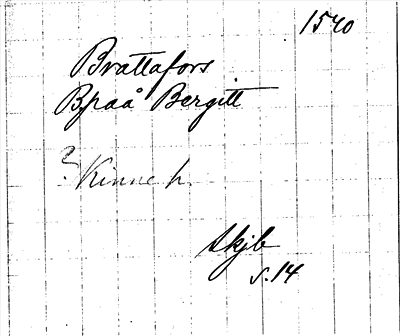 1540
Brattafors
B. paa Bergitt
? Kinne h.
Skjb
s. 14